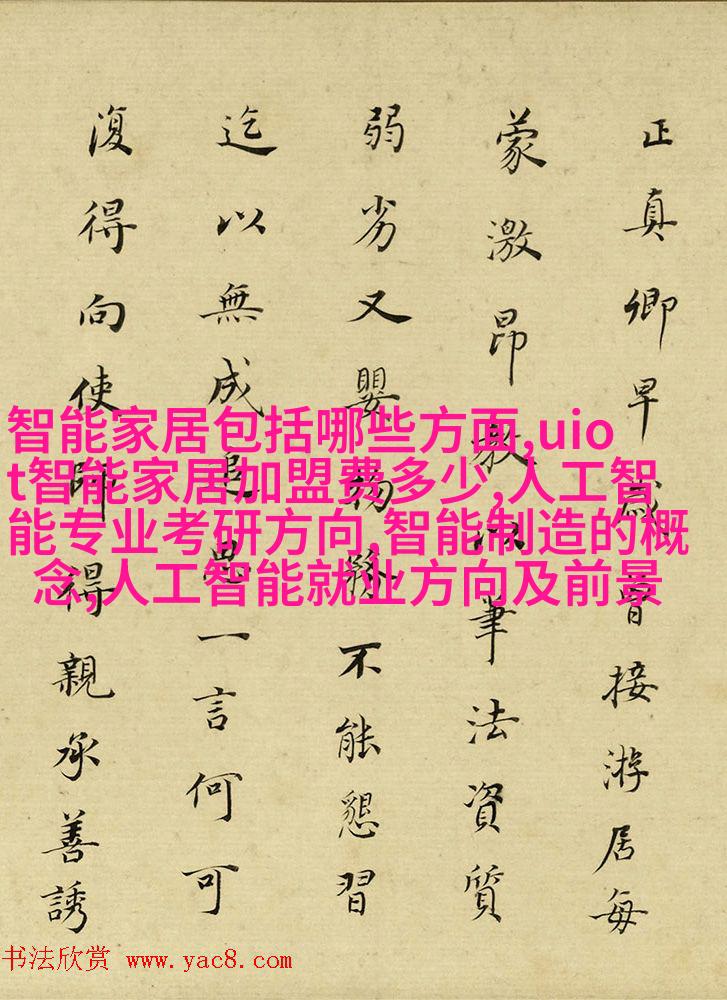 正真卿早歲曾接游居每
蒙激昂教以筆法資質
弱劣又嬰物務不能懇習
迄以無成追思一言何可
復得向使師得親承善誘
智能家居包括哪些方面,uio
t智能家居加盟费多少,人工智
能专业考研方向,智能制造的概
念,人工智能就业方向及前景
书法欣赏 www.yac8.com